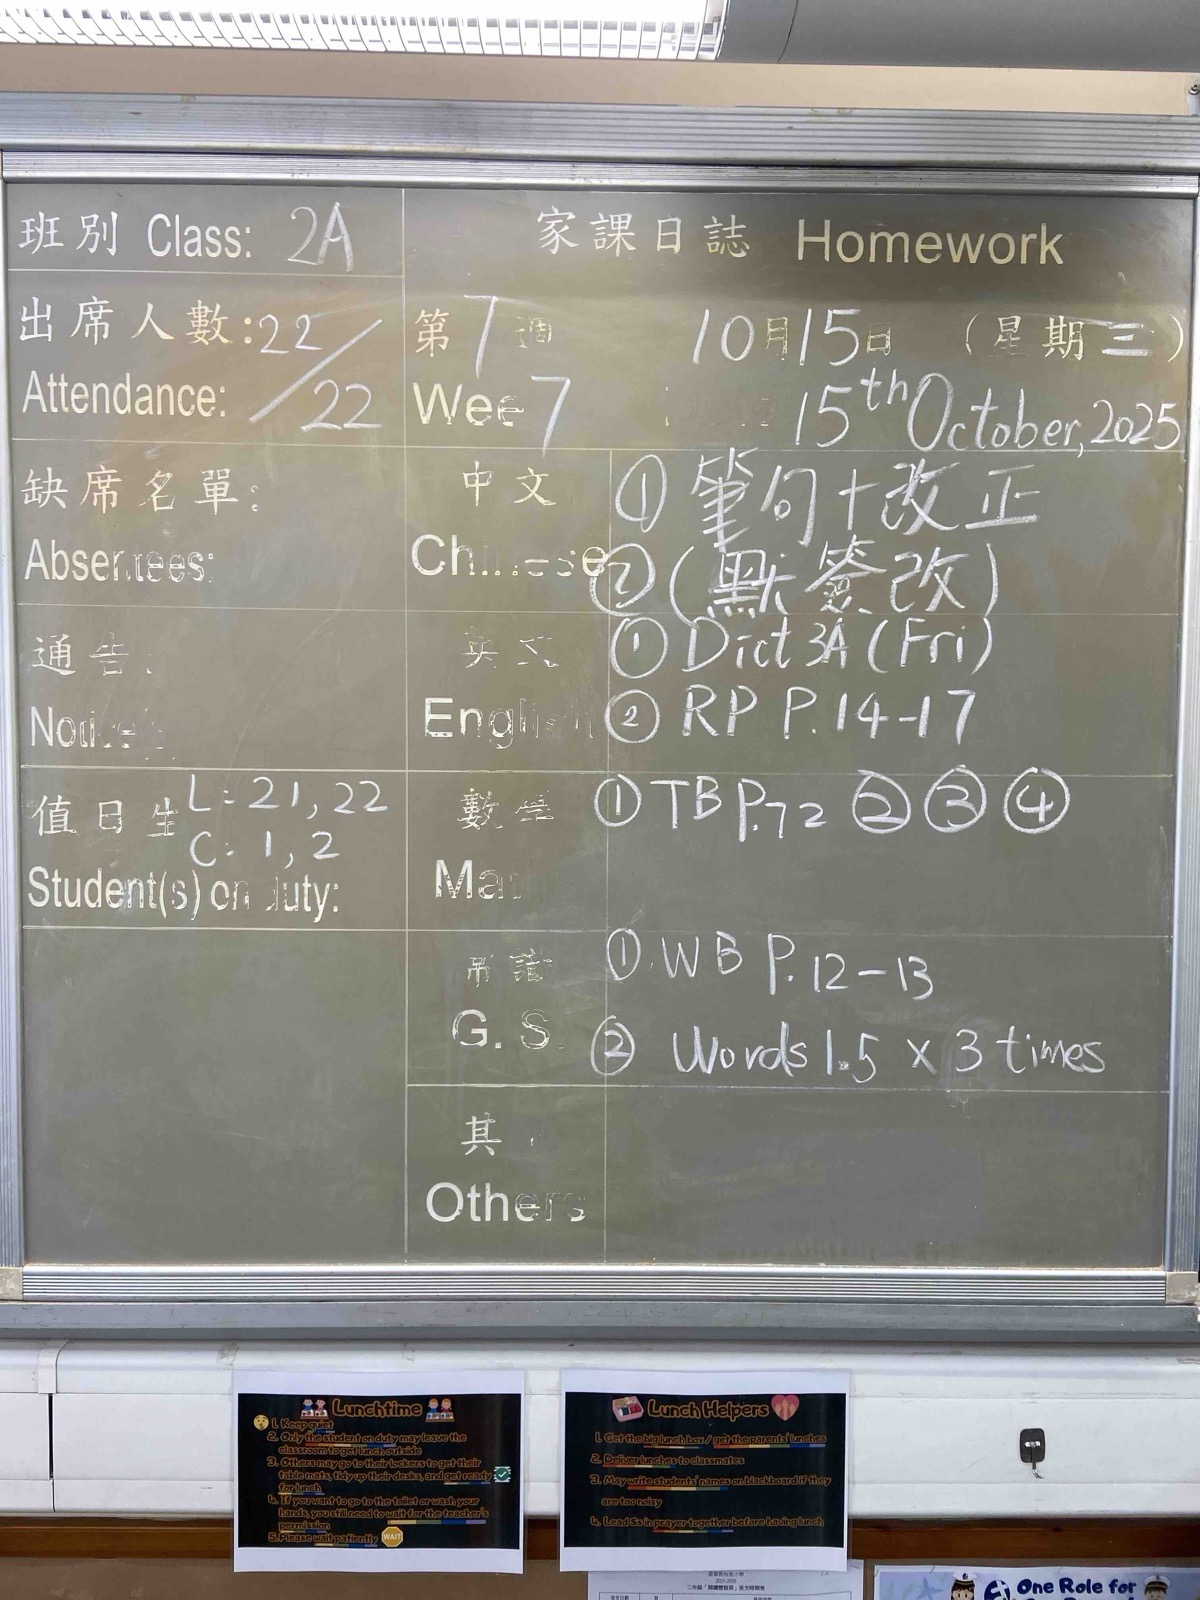 班別 Class: 2A
家課日誌 Homework
出席人數: 22/22
Attendance:
第7週 10月15日 (星期三)
Wee 7 15th October, 2025
缺席名單:
Absentees:
中文
Chinese
① 筆句+改正
② (默簽改)
通告:
Notices:
英文
English
① Dict 3A (Fri)
② RP P.14-17
值日生 L: 21, 22
C: 1, 2
Student(s) on duty:
數學
Mat
① TB P.72 ② ③ ④
常識
G. S.
① WB P. 12-13
② Words 1.5 x 3 times
其
Others
Lunchtime
1. Keep quiet
2. Only the student on duty may leave the
classroom to get lunch outside
3. Others may go to their lockers to get their
table mats, tidy up their desks, and get ready
for lunch
4. If you want to go to the toilet or wash your
hands, you still need to wait for the teacher's
permission
5. Please wait patiently WAIT
Lunch Helpers
1. Get the big lunch box / get the parents' lunches
2. Deliver lunches to classmates
3. May write students' names on blackboard if they
are too noisy
4. Lead Ss in prayer together before having lunch
2025-2026
One Role for